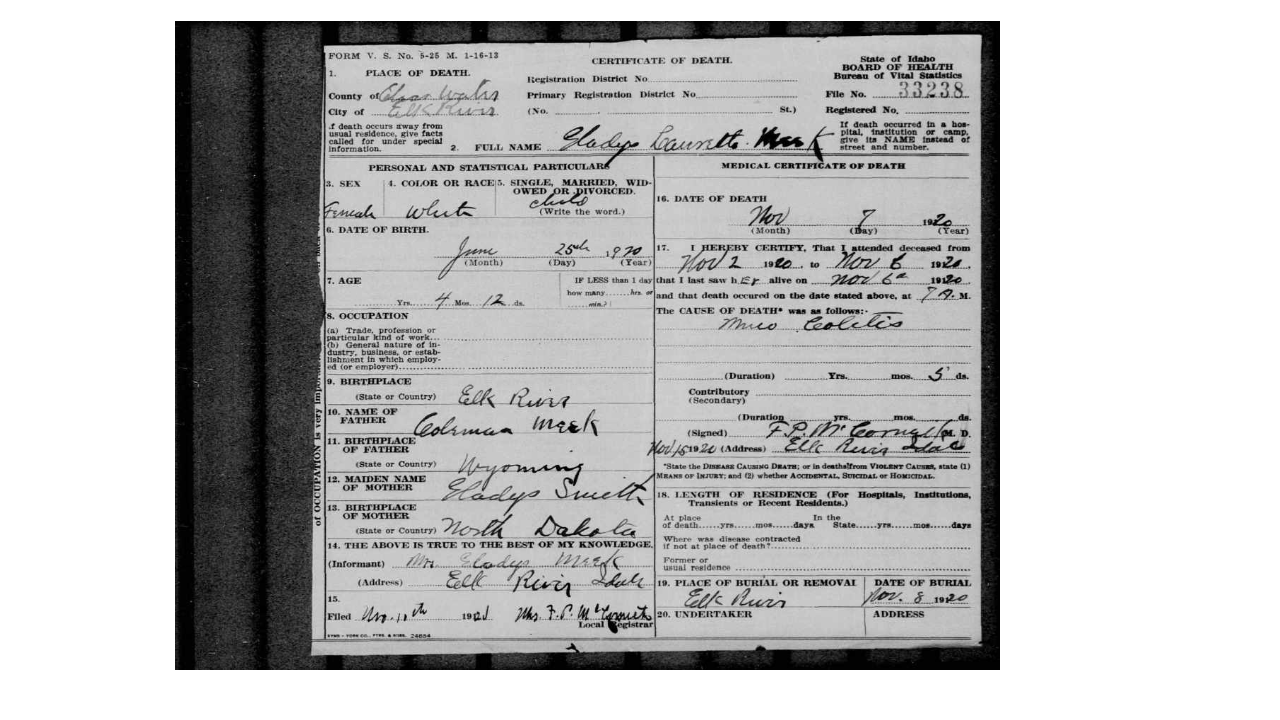 FORM V. S. No. 5-25 M. 1-16-13
CERTIFICATE OF DEATH.
State of Idaho
BOARD OF HEALTH
Bureau of Vital Statistics
File No. 33238
Registered No.
1. PLACE OF DEATH.
County of Clear Water
City of Elk River
Registration District No
Primary Registration District No
(No. St.)
If death occurs away from
usual residence, give facts
called for under special
information.
If death occurred in a hos-
pital, institution or camp,
give its NAME instead of
street and number.
2. FULL NAME Gladys Laurette Meek
PERSONAL AND STATISTICAL PARTICULARS
3. SEX
Female
4. COLOR OR RACE
White
5. SINGLE, MARRIED, WID-
OWED OR DIVORCED.
child
(Write the word.)
6. DATE OF BIRTH.
June 25th 1920
(Month) (Day) (Year)
7. AGE
Yrs. 4 Mos. 12 ds.
IF LESS than 1 day
how many hrs. or
min.?
8. OCCUPATION
(a) Trade, profession or
particular kind of work
(b) General nature of in-
dustry, business, or estab-
lishment in which employ-
ed (or employer)
9. BIRTHPLACE
(State or Country) Elk River
10. NAME OF
FATHER Coleman Meek
11. BIRTHPLACE
OF FATHER
(State or Country) Wyoming
12. MAIDEN NAME
OF MOTHER Gladys Smith
13. BIRTHPLACE
OF MOTHER
(State or Country) North Dakota
14. THE ABOVE IS TRUE TO THE BEST OF MY KNOWLEDGE.
(Informant) Mrs Gladys Meek
(Address) Elk River Idaho
15.
Filed Nov. 10th 1920 Mrs. F. P. McCornick
Local Registrar
24854
of OCCUPATION is very
MEDICAL CERTIFICATE OF DEATH
16. DATE OF DEATH
Nov 7 1920
(Month) (Day) (Year)
17. I HEREBY CERTIFY, That I attended deceased from
Nov 2 1920, to Nov 6 1920
that I last saw her alive on Nov 6 1920
and that death occured on the date stated above, at 7 A. M.
The CAUSE OF DEATH* was as follows:-
Muco Colitis
(Duration) Yrs. mos. 5 ds.
Contributory
(Secondary)
(Duration yrs. mos. ds.
(Signed) F. P. McCornick M. D.
Nov 15 1920 (Address) Elk River Idaho
*State the DISEASE CAUSING DEATH; or in deaths from VIOLENT CAUSES, state (1)
MEANS OF INJURY; and (2) whether ACCIDENTAL, SUICIDAL or HOMICIDAL.
18. LENGTH OF RESIDENCE (For Hospitals, Institutions,
Transients or Recent Residents.)
At place In the
of death yrs. mos. days State yrs. mos. days
Where was disease contracted
if not at place of death?
Former or
usual residence
19. PLACE OF BURIAL OR REMOVAL
Elk River
DATE OF BURIAL
Nov. 8 1920
20. UNDERTAKER
ADDRESS